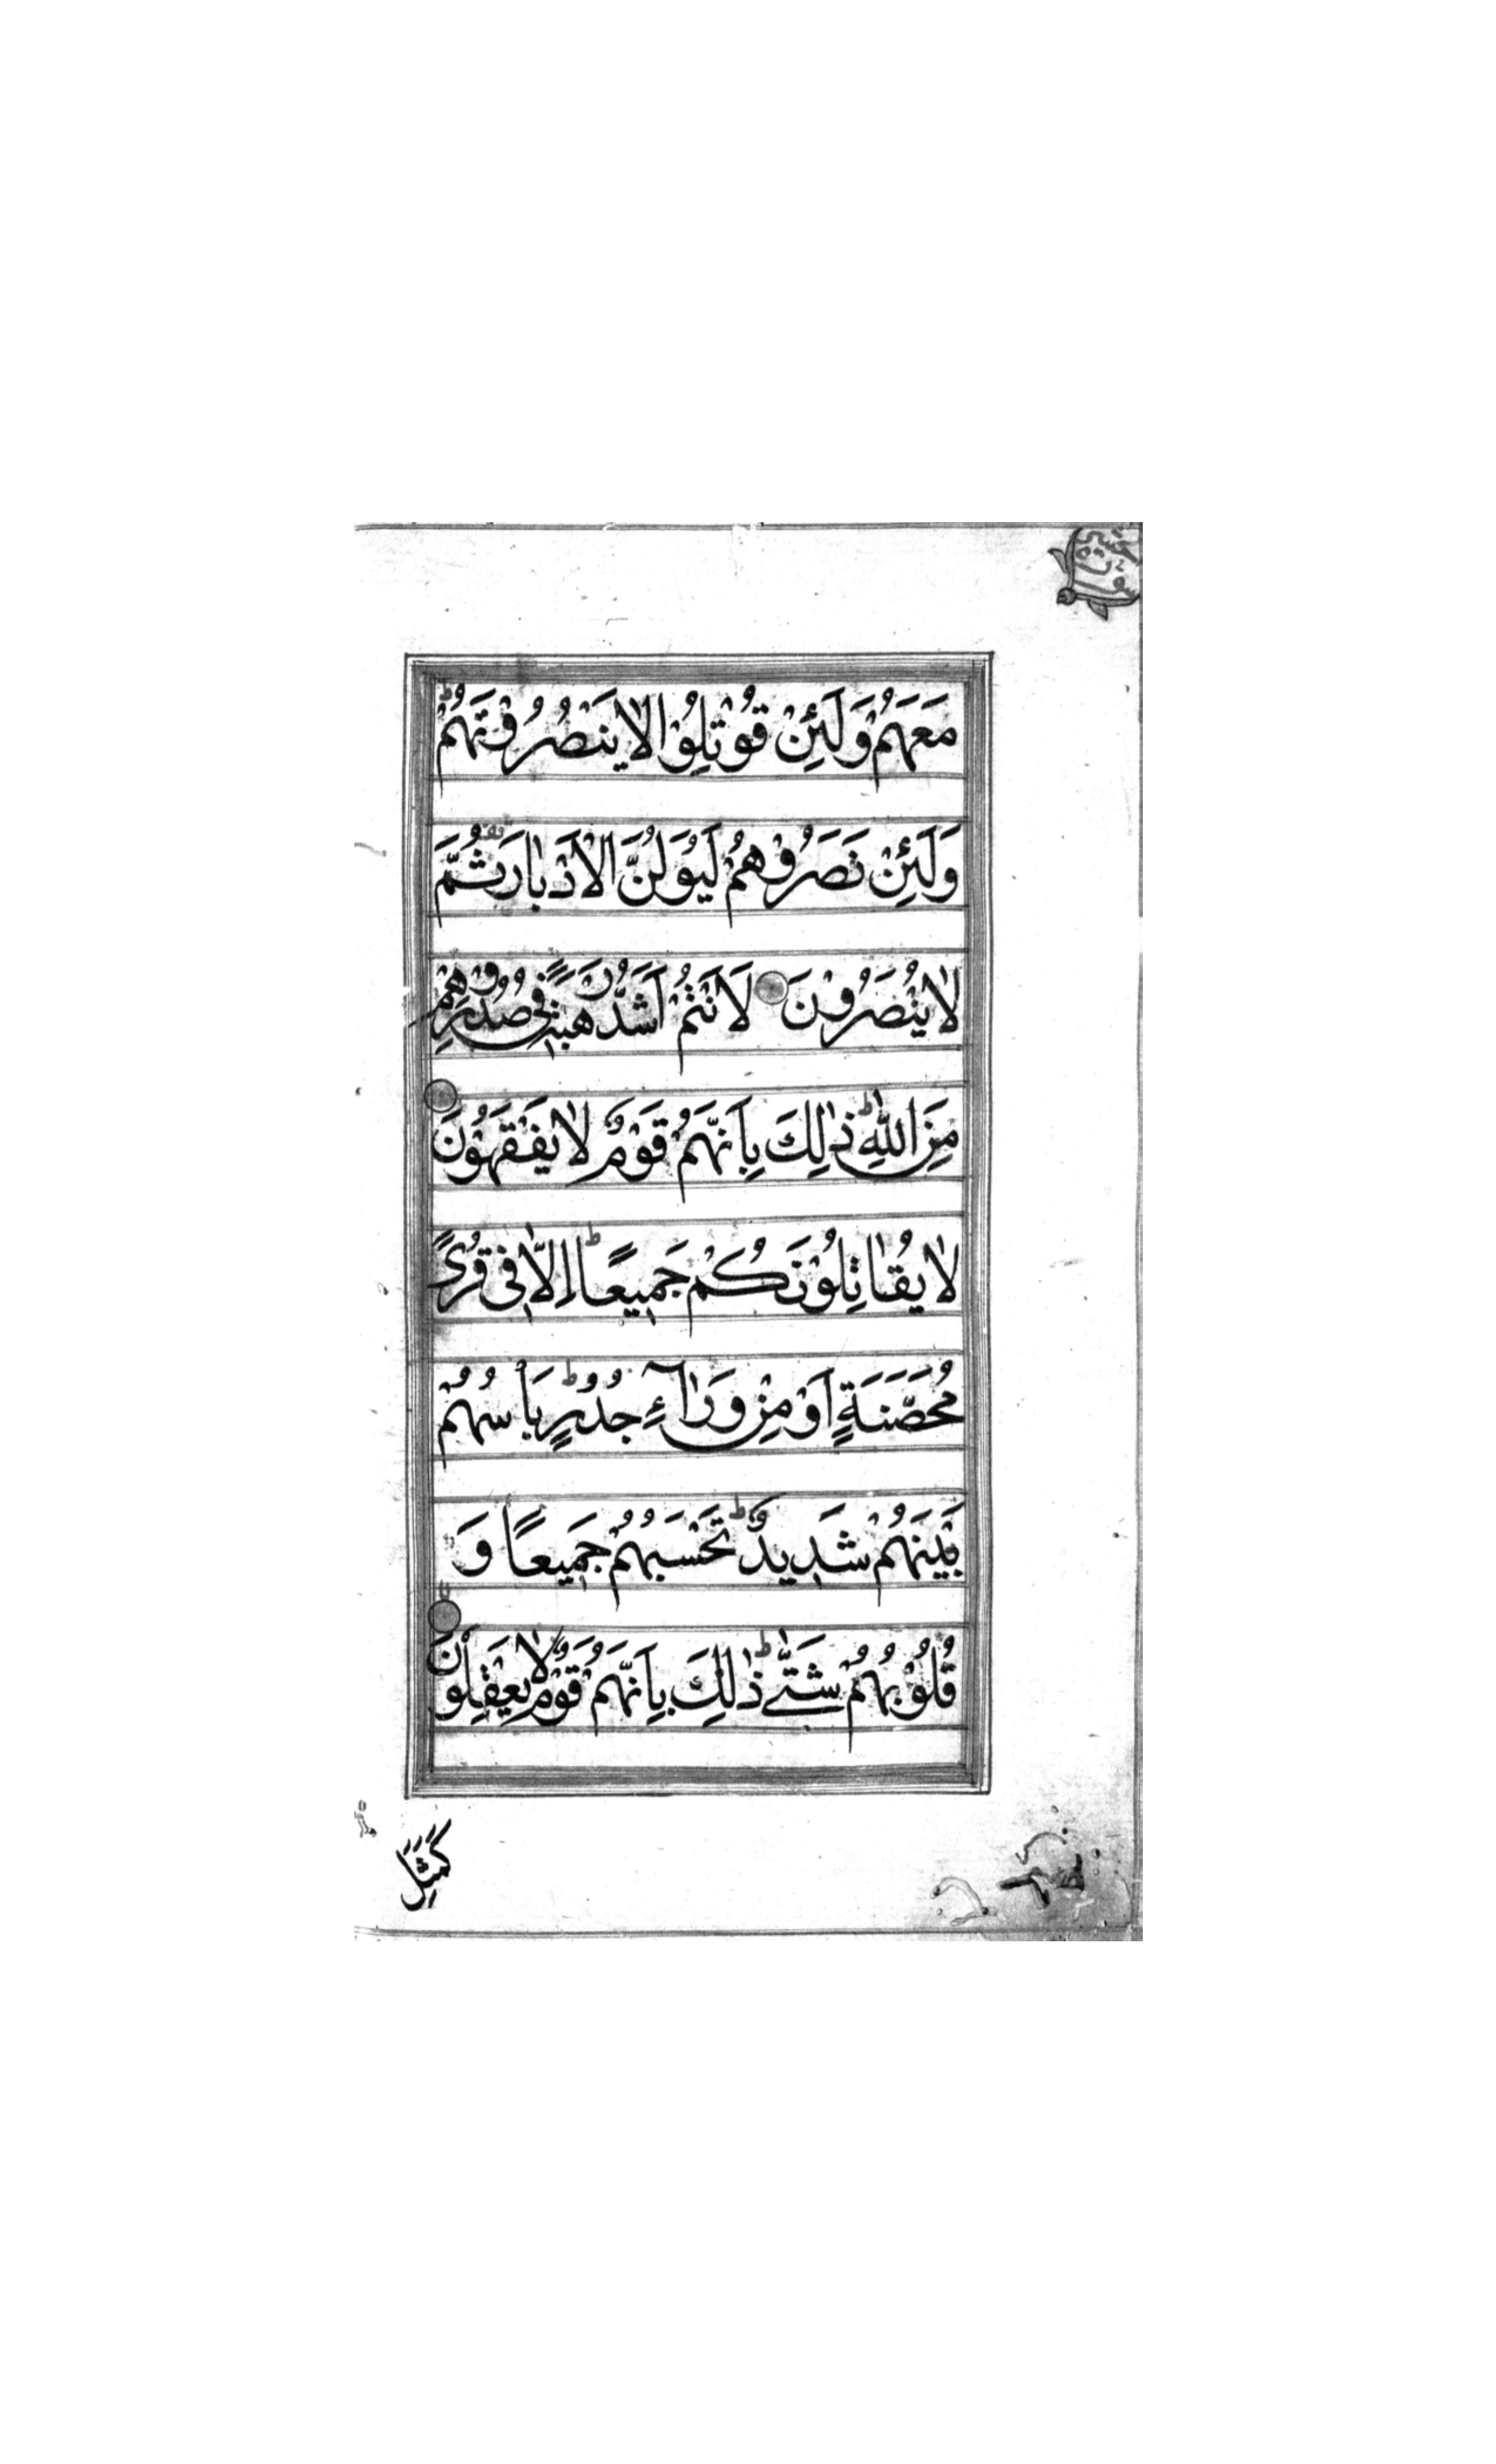 مَعَهُمْ وَلَئِنْ قُوْتِلُوْا لَا يَنْصُرُوْنَهُمْ ط
وَلَئِنْ نَصَرُوْهُمْ لَيُوَلُّنَّ الْاَدْبَارَ ثُمَّ
لَا يُنْصَرُوْنَ لَاَنْتُمْ اَشَدُّ رَهْبَةً فِي صُدُوْرِهِمْ
مِنَ اللّٰهِ ط ذٰلِكَ بِاَنَّهُمْ قَوْمٌ لَا يَفْقَهُوْنَ
لَا يُقَاتِلُوْنَكُمْ جَمِيعًا ط اِلَّا فِي قُرًى
مُحَصَّنَةٍ اَوْ مِنْ وَرَآءِ جُدُرٍ ط بَأْسُهُمْ
بَيْنَهُمْ شَدِيدٌ ط تَحْسَبُهُمْ جَمِيعًا وَ
قُلُوْبُهُمْ شَتّٰى ط ذٰلِكَ بِاَنَّهُمْ قَوْمٌ لَا يَعْقِلُوْنَ
كَمَثَلِ